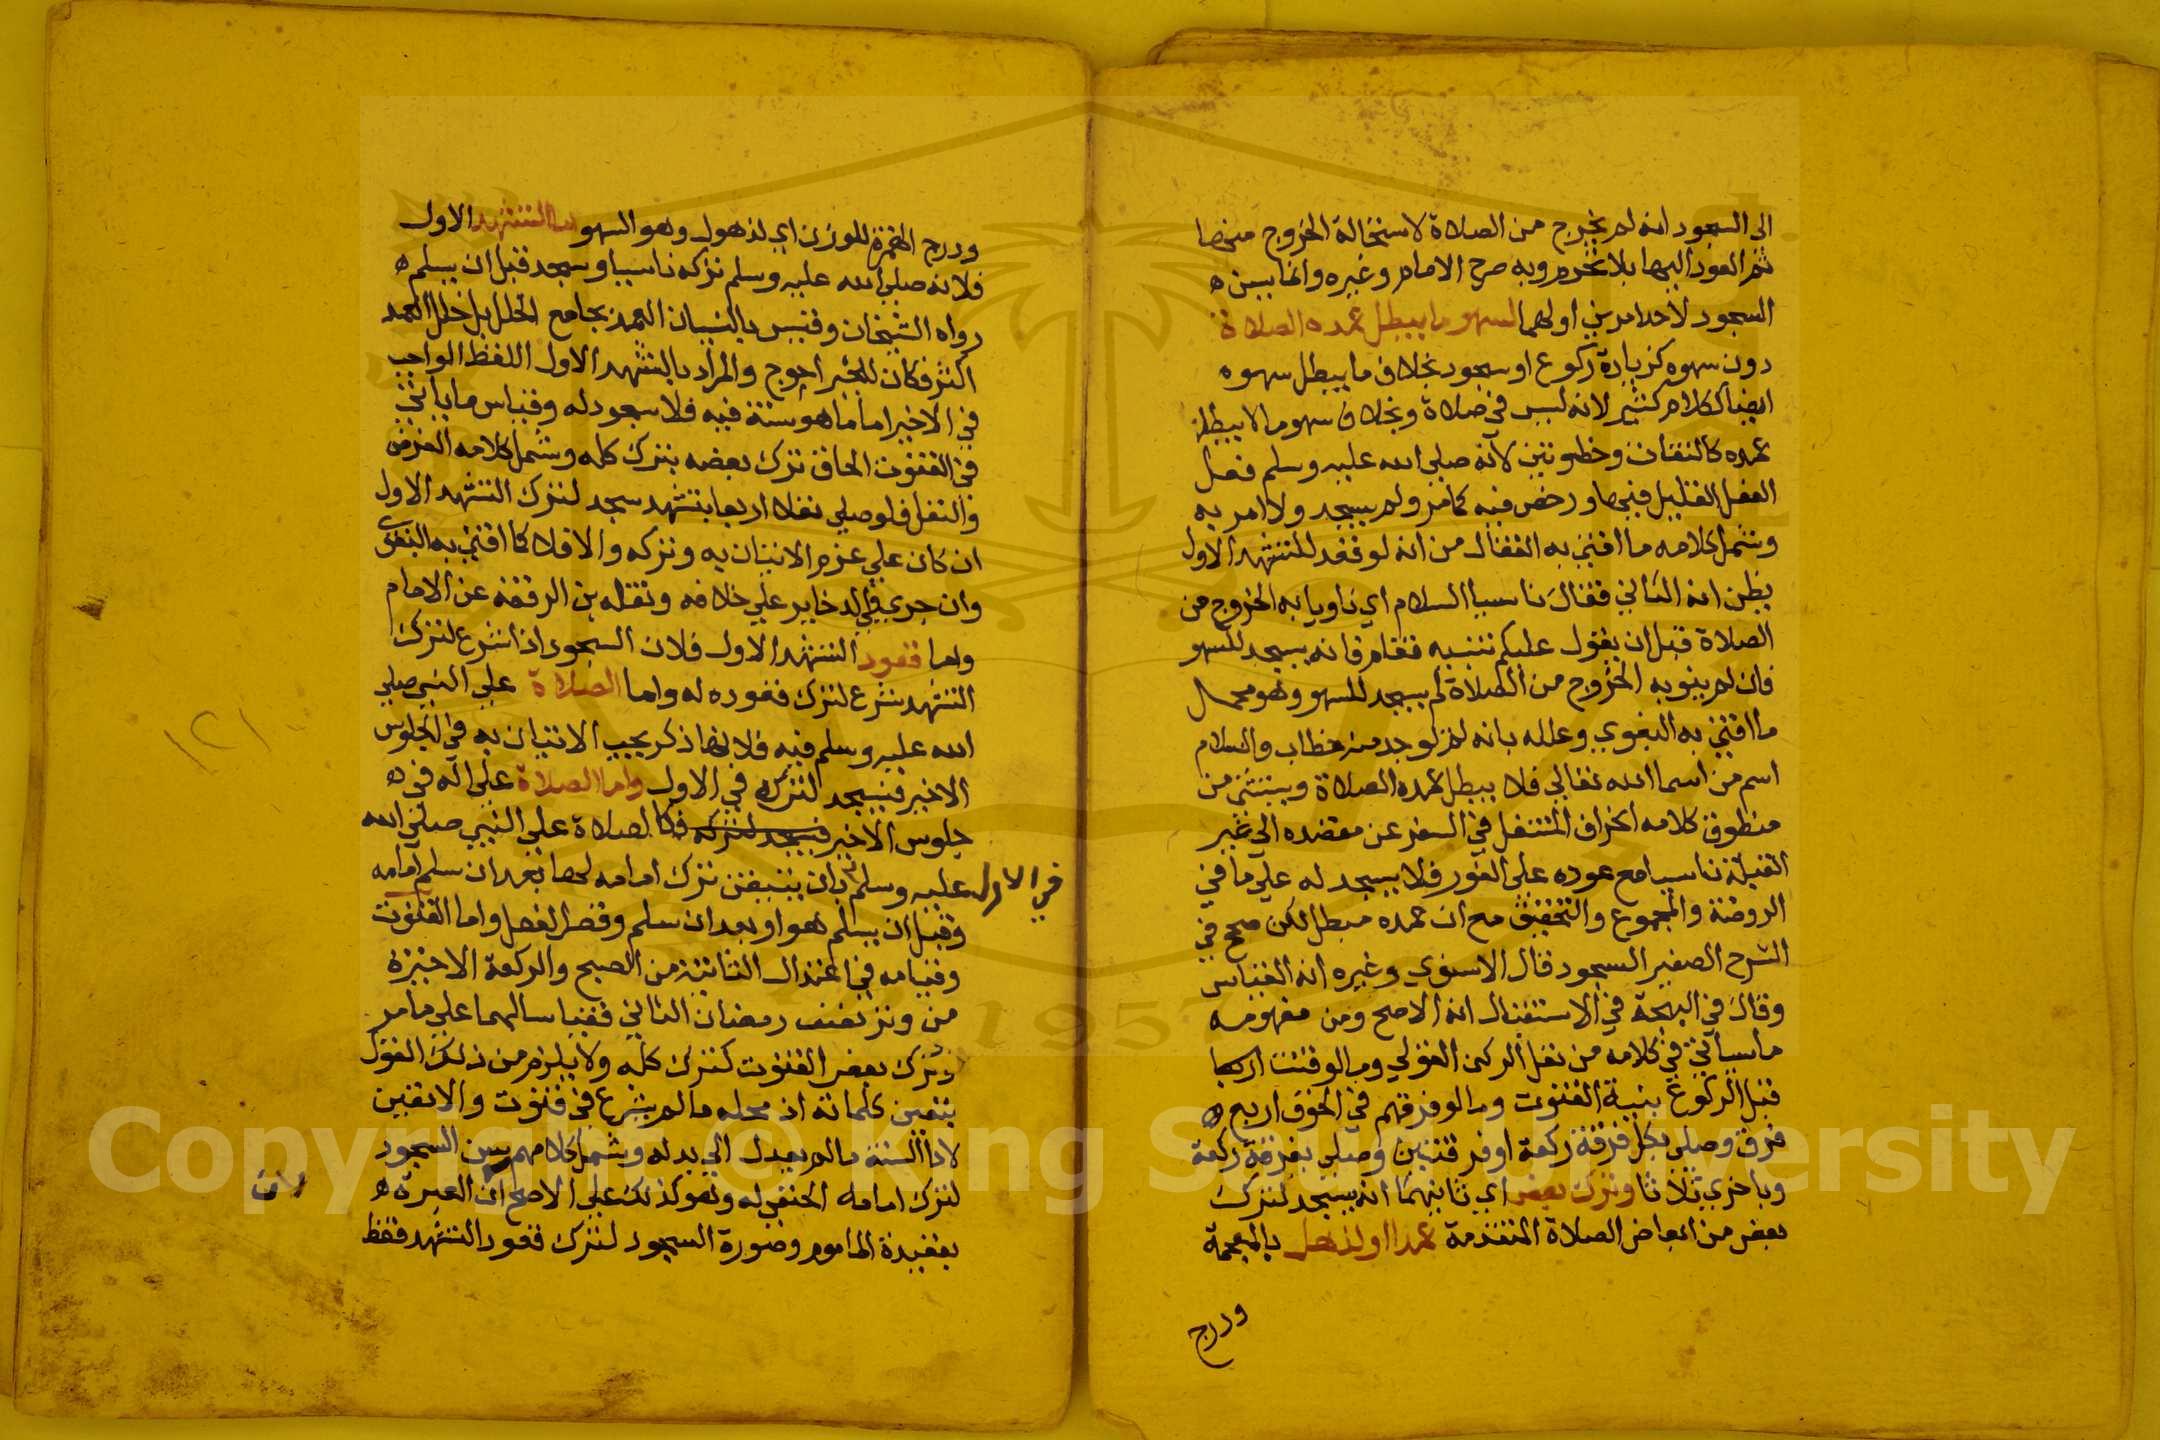 الى السجود انه لم يخرج من الصلاة لاستحالة الخروج منها
ثم العود اليها بلا تحرم وبه صرح الامام وغيره وانما يسن ه
السجود لاحد امرين اولهما لسهو ما يبطل عمده الصلاة
دون سهوه كزيادة ركوع او سجود بخلاف ما يبطل سهوه
ايضا ككلام كثير لانه ليس في صلاة وبخلاف سهو ما لا يبطل
عمده كالتفات وخطوتين لانه صلى الله عليه وسلم فعل
الفعل القليل فيها ورخص فيه كما مر ولم يسجد ولا امر به
وشمل كلامه ما افتى به القفال من انه لو قعد للتشهد الاول
يظن انه الثاني فقال ناسيا السلام اي ناويا به الخروج من
الصلاة قبل ان يقول عليكم تنبه فقام فانه يسجد للسهو
فان لم ينو به الخروج من الصلاة لم يسجد للسهو وهو محمل
ما افتى به البغوي وعلله بانه لم يوجد منه خطاب والسلام
اسم من اسما الله تعالى فلا يبطل عمده الصلاة ويستثنى من
منطوق كلامه انحراف المتنفل في السفر عن مقصده الى غير
القبلة ناسيا مع عوده على الفور فلا يسجد له على ما في
الروضة والمجموع والتحقيق مع ان عمده مبطل لكن صحح في
الشرح الصغير السجود قال الاسنوي وغيره انه القياس
وقال في البهجة في الاستقبال انه الاصح ومن مفهومه
ما سياتي في كلامه من نقل الركن القولي وما لو قنت
قبل الركوع بنية القنوت وما لو فرقهم في الخوف اربع ه
فرق وصلى بكل فرقة ركعة او فرقتين وصلى بفرقة ركعة
وباخرى ثلاثا وترك بعض اي ثانيهما انه يسجد لترك
بعض من ابعاض الصلاة المتقدمة عمدا او لذهل بالمعجمة
ودرج
ودرج الهمزة للوزن اي لذهول وهو السهو اما التشهد الاول
فلانه صلى الله عليه وسلم تركه ناسيا وسجد قبل ان يسلم ه
رواه الشيخان وقيس بالنسيان العمد بجامع الخلل بل خلل العمد
اكثر فكان للجبر احوج والمراد بالتشهد الاول اللفظ الواجب
في الاخير اما ما هو سنة فيه فلا سجود له وقياس ما ياتي
في القنوت الحاق ترك بعضه بترك كله وشمل كلامه الفرض
والنفل فلو صلى نفلا اربعا بتشهد سجد لترك التشهد الاول
ان كان على عزم الاتيان به وتركه والا فلا كما افتى به البغوى
وان جرى في الذخاير على خلافه ونقله بن الرفعة عن الامام
واما قعود التشهد الاول فلان السجود اذا شرع لترك
التشهد شرع لترك قعوده له واما الصلاة على النبي صلى
الله عليه وسلم فيه فلانها ذكر يجب الاتيان به في الجلوس
الاخير فيسجد لتركه في الاول واما الصلاة على اله في ه
جلوس الاخير فيسجد لتركه فكالصلاة على النبي صلى الله
في الاول
عليه وسلم بان يتيقن ترك امامه لها بعد ان سلم امامه
وقبل ان يسلم هو او بعد ان سلم وقصر الفصل واما القنوت
وقيامه في اعتدال الثانية من الصبح والركعة الاخيرة
من وتر نصف رمضان الثاني فقياسا لهما على ما مر
وترك بعض القنوت كترك كله ولا يلزم من ذلك القول
بتعين كلماته اذ محله ما لم يشرع في قنوت والا تعين
لادا السنة ما لم يعدل الى بدله وشمل كلامهم سن السجود
لترك امامه الحنفي له وهو كذلك على الاصح لان العبرة ه
بعقيدة الماموم وصورة السجود لترك قعود التشهد فقط
Copyright © King Saud University
1957